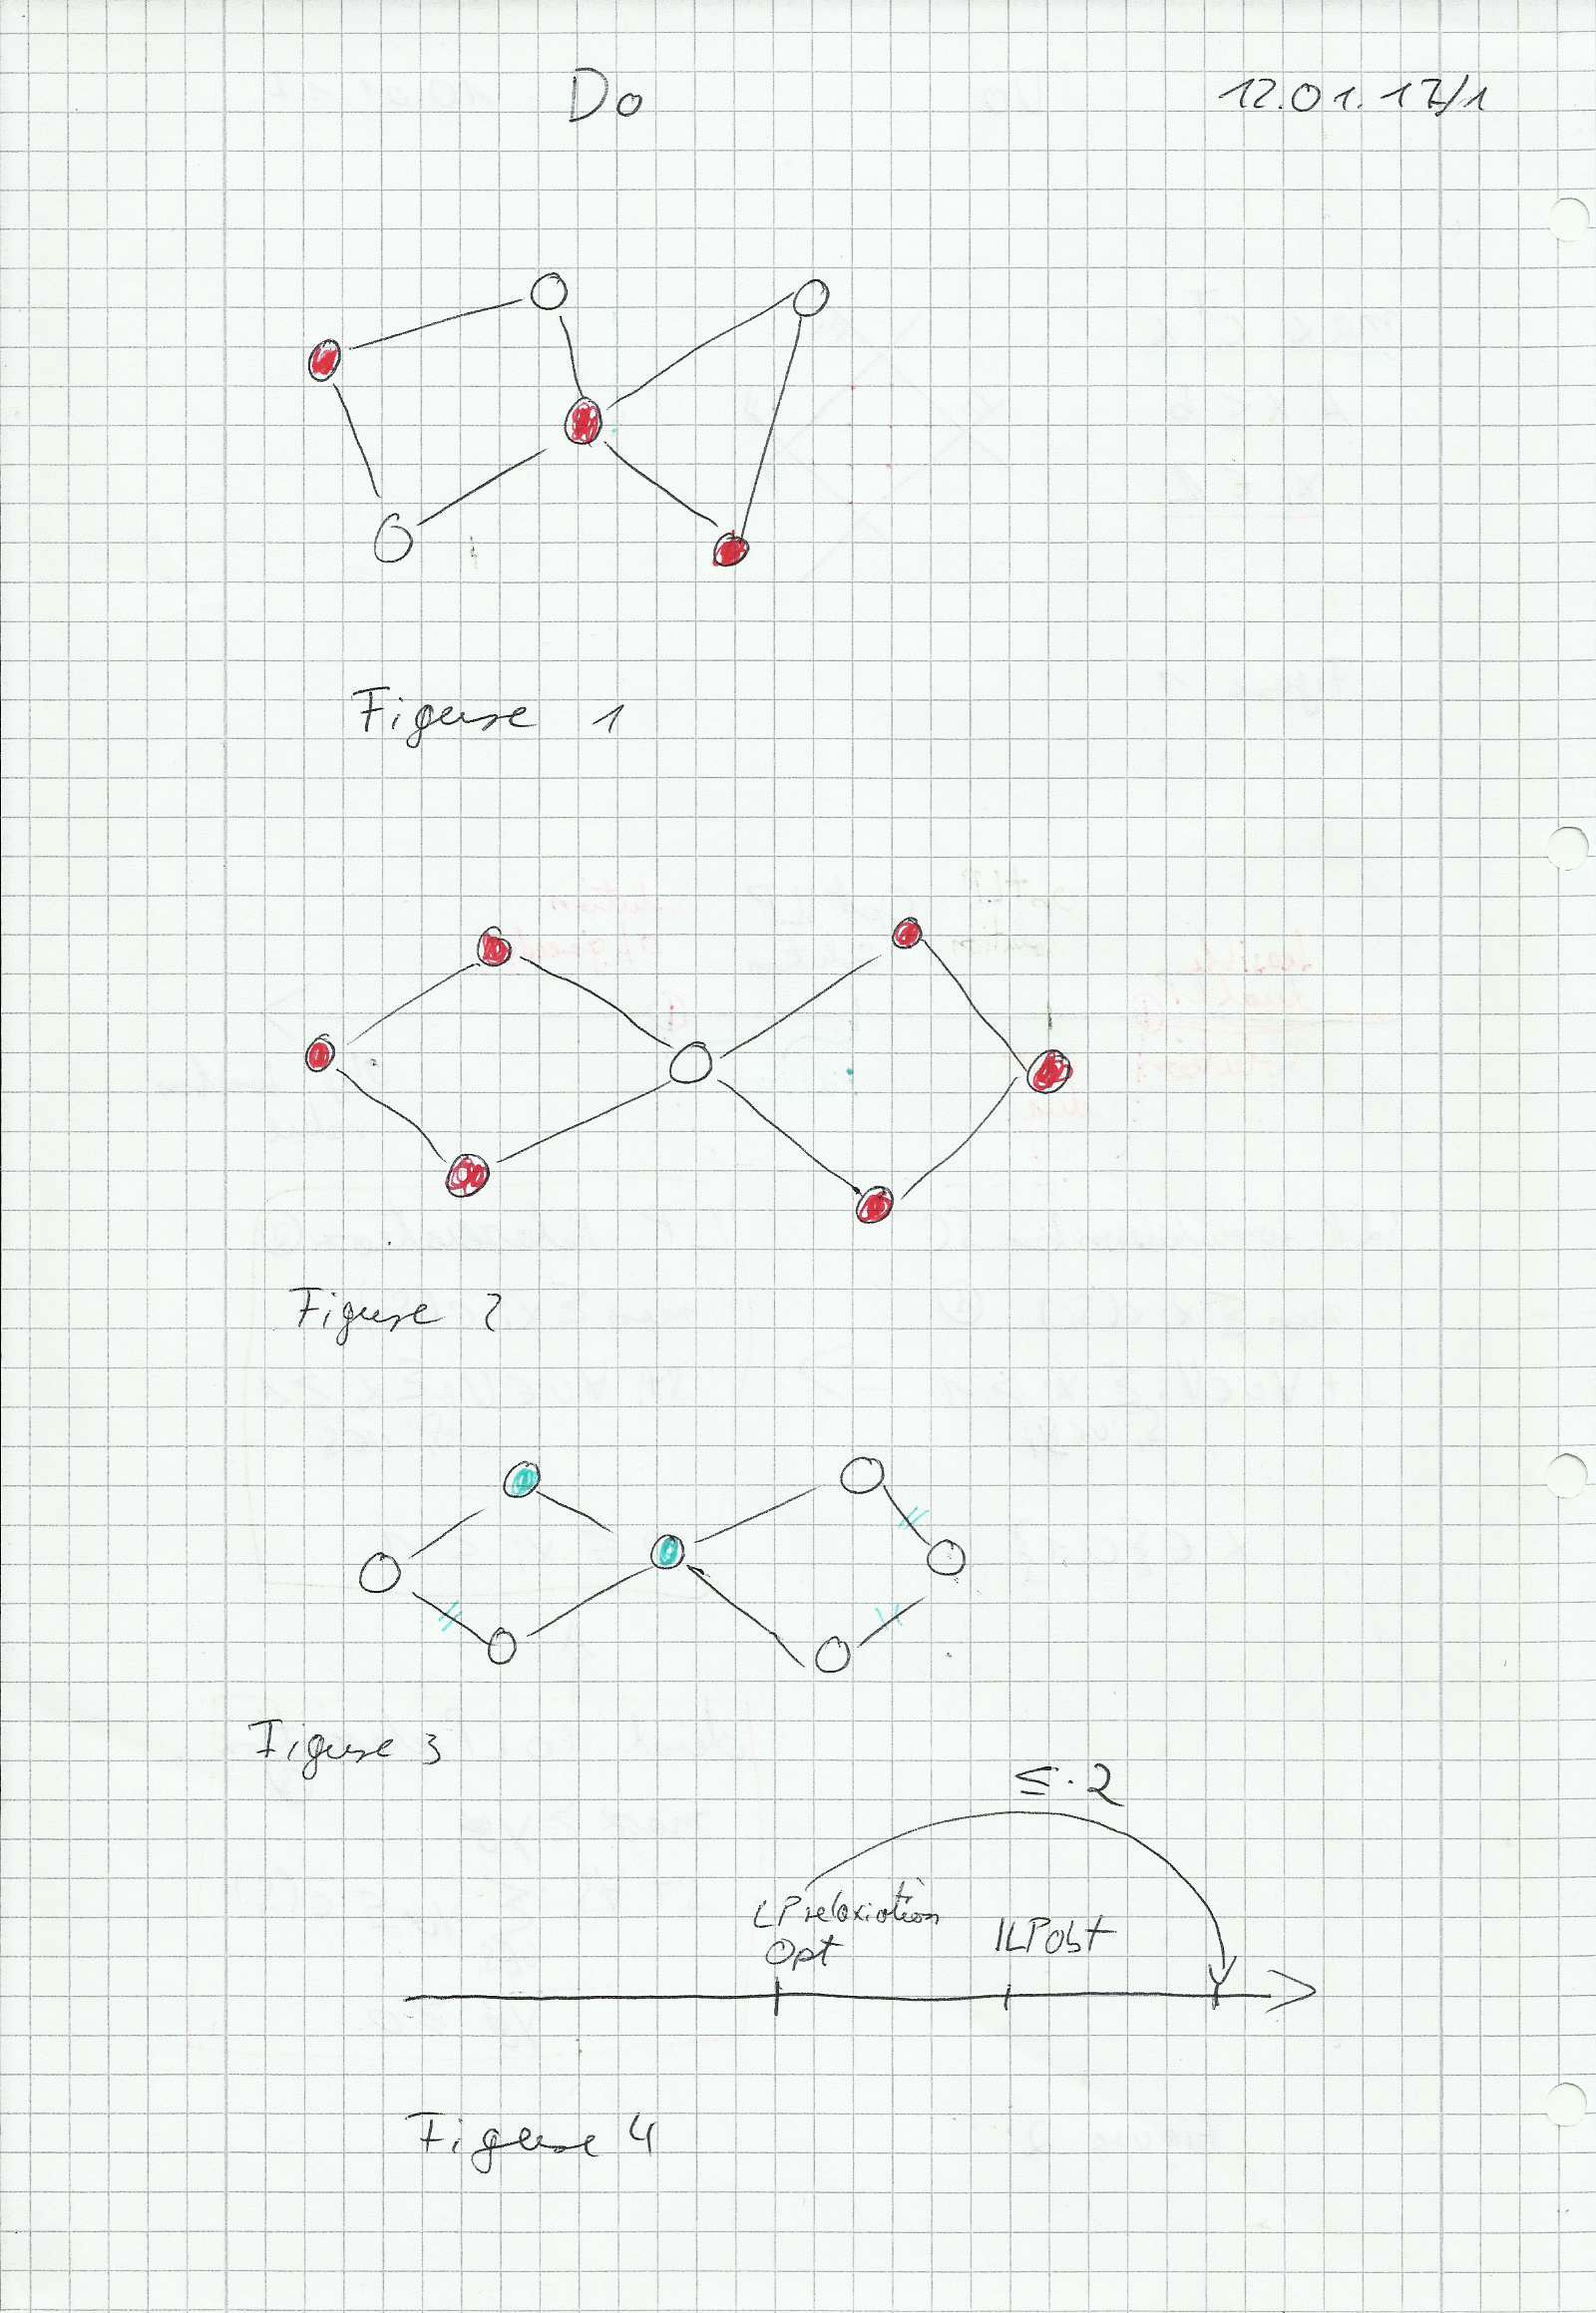 Do 12.01.17/1
Figure 1
Figure 2
Figure 3
≤·2
LP relaxiation
Opt
ILP Opt
Figure 4